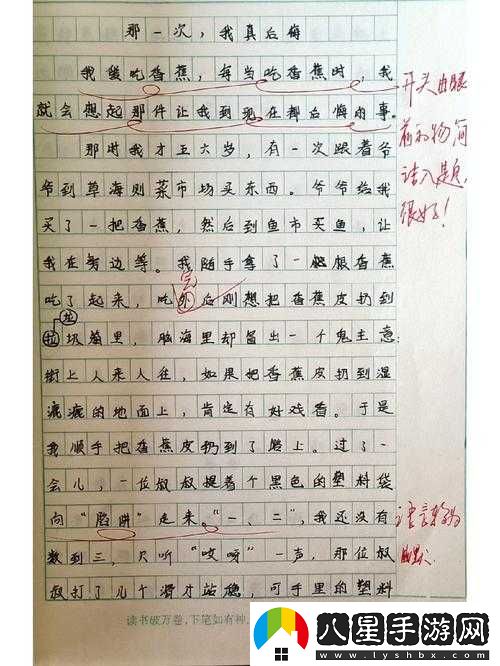 那一次，我真后悔
我爱吃香蕉，每当吃香蕉时，我
就会想起那件让我到现在都后悔的事。
那时我才五六岁，有一次跟着爷
爷到草海则菜市场买东西。爷爷给我
买了一把香蕉，然后到鱼市买鱼，让
我在旁边等。我随手拿了一根香蕉
吃了起来，吃完后刚想把香蕉皮扔到
垃圾箱里，脑海里却冒出一个鬼主意：
街上人来人往，如果把香蕉皮扔到湿
漉漉的地面上，肯定有好戏看。于是
我顺手把香蕉皮扔到了路上。过了一
会儿，一位叔叔提着个黑色的塑料袋
向“陷阱”走来。“一、二”，我还没有
数到三，只听“哎呀”一声，那位叔
叔打了几个滑才站稳，可手里的塑料
开头由眼
前的物简
洁入题，
很好！
语言较为
幽默
读书破万卷，下笔如有神
八星手游网